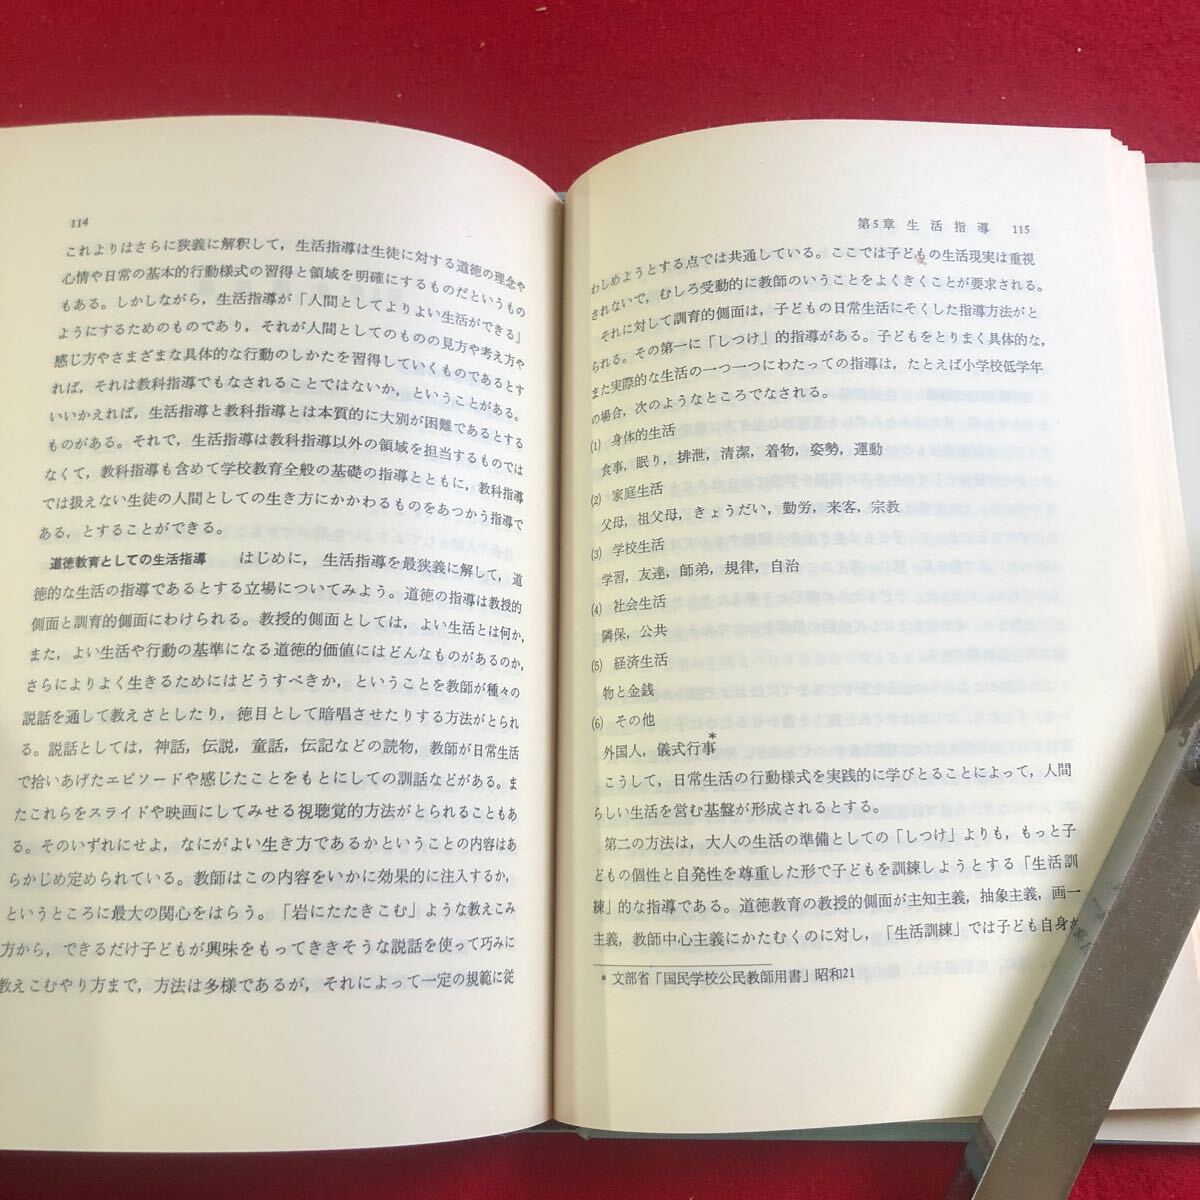 114
これよりはさらに狭義に解釈して，生活指導は生徒に対する道徳の理念や
心情や日常の基本的行動様式の習得と領域を明確にするものだというもの
もある。しかしながら，生活指導が「人間としてよりよい生活ができる」
ようにするためのものであり，それが人間としてのものの見方や考え方や
感じ方やさまざまな具体的な行動のしかたを習得していくものであるとす
れば，それは教科指導でもなされることではないか，ということがある。
いいかえれば，生活指導と教科指導とは本質的に大別が困難であるとする
ものがある。それで，生活指導は教科指導以外の領域を担当するものでは
なくて，教科指導も含めて学校教育全般の基礎の指導とともに，教科指導
では扱えない生徒の人間としての生き方にかかわるものをあつかう指導で
ある，とすることができる。
道徳教育としての生活指導　はじめに，生活指導を最狭義に解して，道
徳的な生活の指導であるとする立場についてみよう。道徳の指導は教授的
側面と訓育的側面にわけられる。教授的側面としては，よい生活とは何か，
また，よい生活や行動の基準になる道徳的価値にはどんなものがあるのか，
さらによりよく生きるためにはどうすべきか，ということを教師が種々の
説話を通して教えさとしたり，徳目として暗唱させたりする方法がとられ
る。説話としては，神話，伝説，童話，伝記などの読物，教師が日常生活
で拾いあげたエピソードや感じたことをもとにしての訓話などがある。ま
たこれらをスライドや映画にしてみせる視聴覚的方法がとられることもあ
る。そのいずれにせよ，なにがよい生き方であるかということの内容はあ
らかじめ定められている。教師はこの内容をいかに効果的に注入するか，
というところに最大の関心をはらう。「岩にたたきこむ」ような教えこみ
方から，できるだけ子どもが興味をもってききそうな説話を使って巧みに
教えこむやり方まで，方法は多様であるが，それによって一定の規範に従
第5章 生活指導 115
わしめようとする点では共通している。ここでは子どもの生活現実は重視
されないで，むしろ受動的に教師のいうことをよくきくことが要求される。
それに対して訓育的側面は，子どもの日常生活にそくした指導方法がと
られる。その第一に「しつけ」的指導がある。子どもをとりまく具体的な，
また実際的な生活の一つ一つにわたっての指導は，たとえば小学校低学年
の場合，次のようなところでなされる。
(1) 身体的生活
食事，眠り，排泄，清潔，着物，姿勢，運動
(2) 家庭生活
父母，祖父母，きょうだい，勤労，来客，宗教
(3) 学校生活
学習，友達，師弟，規律，自治
(4) 社会生活
隣保，公共
(5) 経済生活
物と金銭
(6) その他
外国人，儀式行事*
こうして，日常生活の行動様式を実践的に学びとることによって，人間
らしい生活を営む基盤が形成されるとする。
第二の方法は，大人の生活の準備としての「しつけ」よりも，もっと子
どもの個性と自発性を尊重した形で子どもを訓練しようとする「生活訓
練」的な指導である。道徳教育の教授的側面が主知主義，抽象主義，画一
主義，教師中心主義にかたむくのに対し，「生活訓練」では子ども自身が
* 文部省「国民学校公民教師用書」昭和21